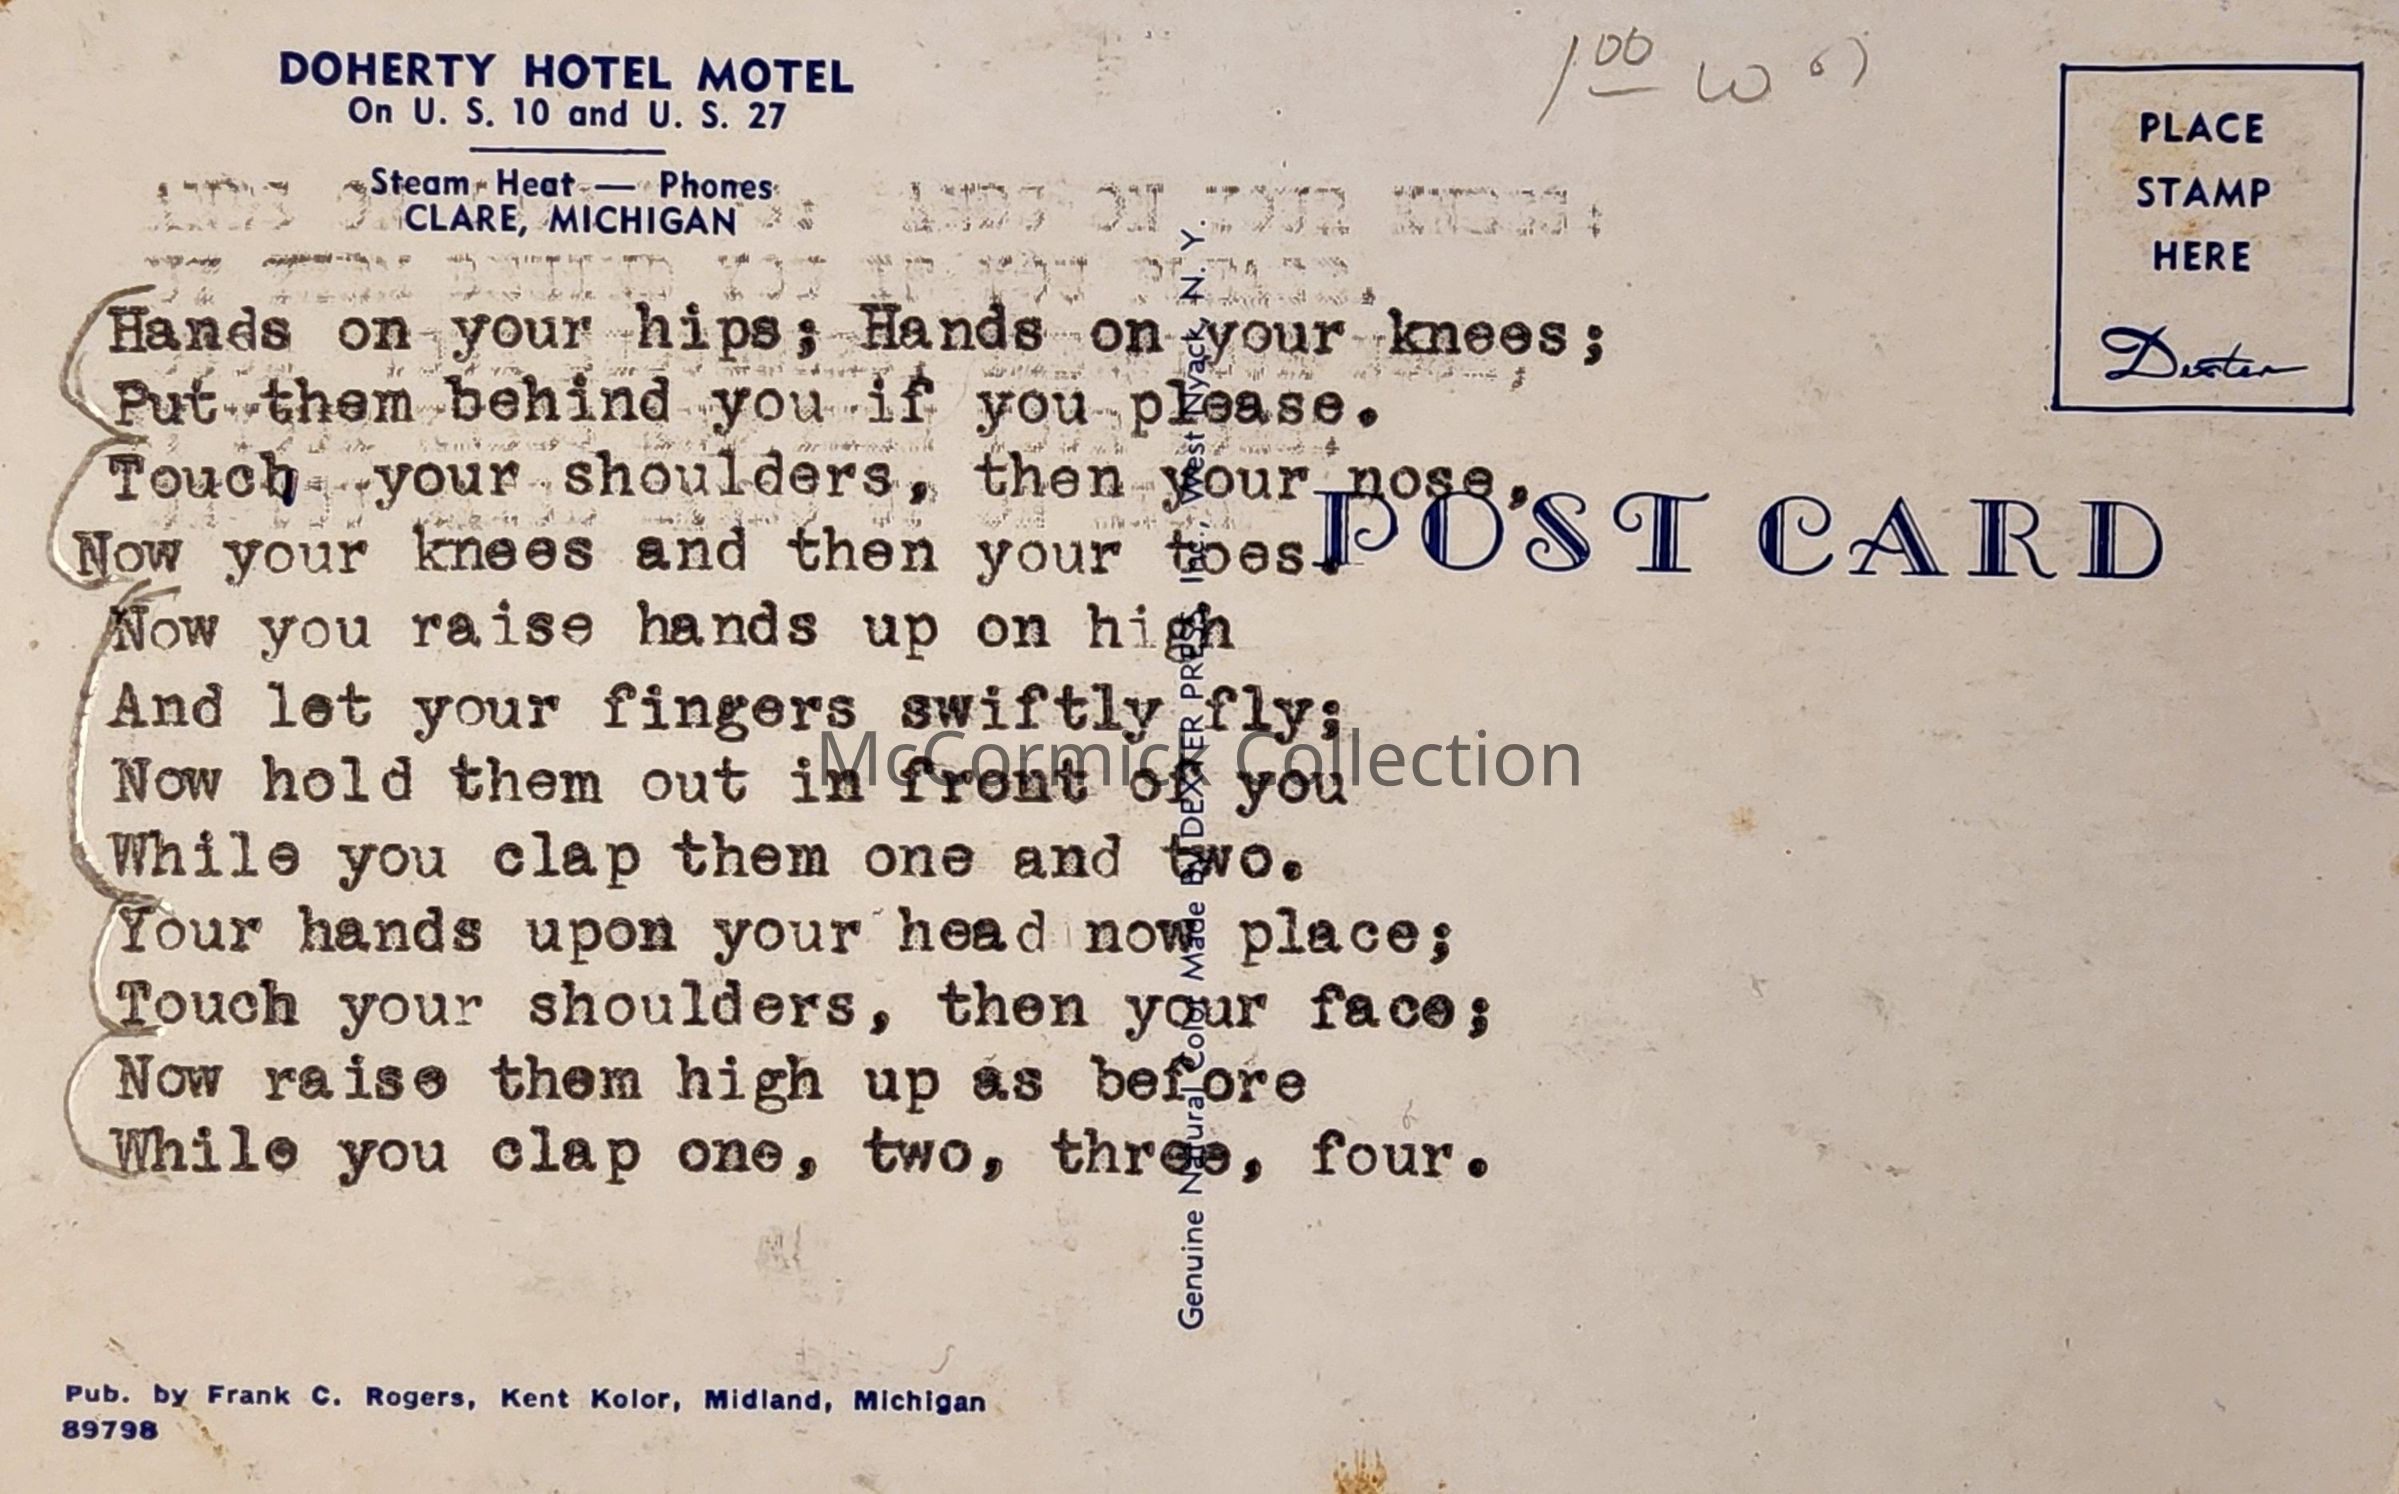 DOHERTY HOTEL MOTEL
On U. S. 10 and U. S. 27
Steam Heat — Phones
CLARE, MICHIGAN
1 00
PLACE
STAMP
HERE
Dexter
Hands on your hips; Hands on your knees;
Put them behind you if you please.
Touch your shoulders, then your nose,
Now your knees and then your toes.
Now you raise hands up on high
And let your fingers swiftly fly;
Now hold them out in front of you
While you clap them one and two.
Your hands upon your head now place;
Touch your shoulders, then your face;
Now raise them high up as before
While you clap one, two, three, four.
POST CARD
Genuine Natural Color Made By DEXTER PRESS, Inc., West Nyack, N. Y.
McCormick Collection
Pub. by Frank C. Rogers, Kent Kolor, Midland, Michigan
89798